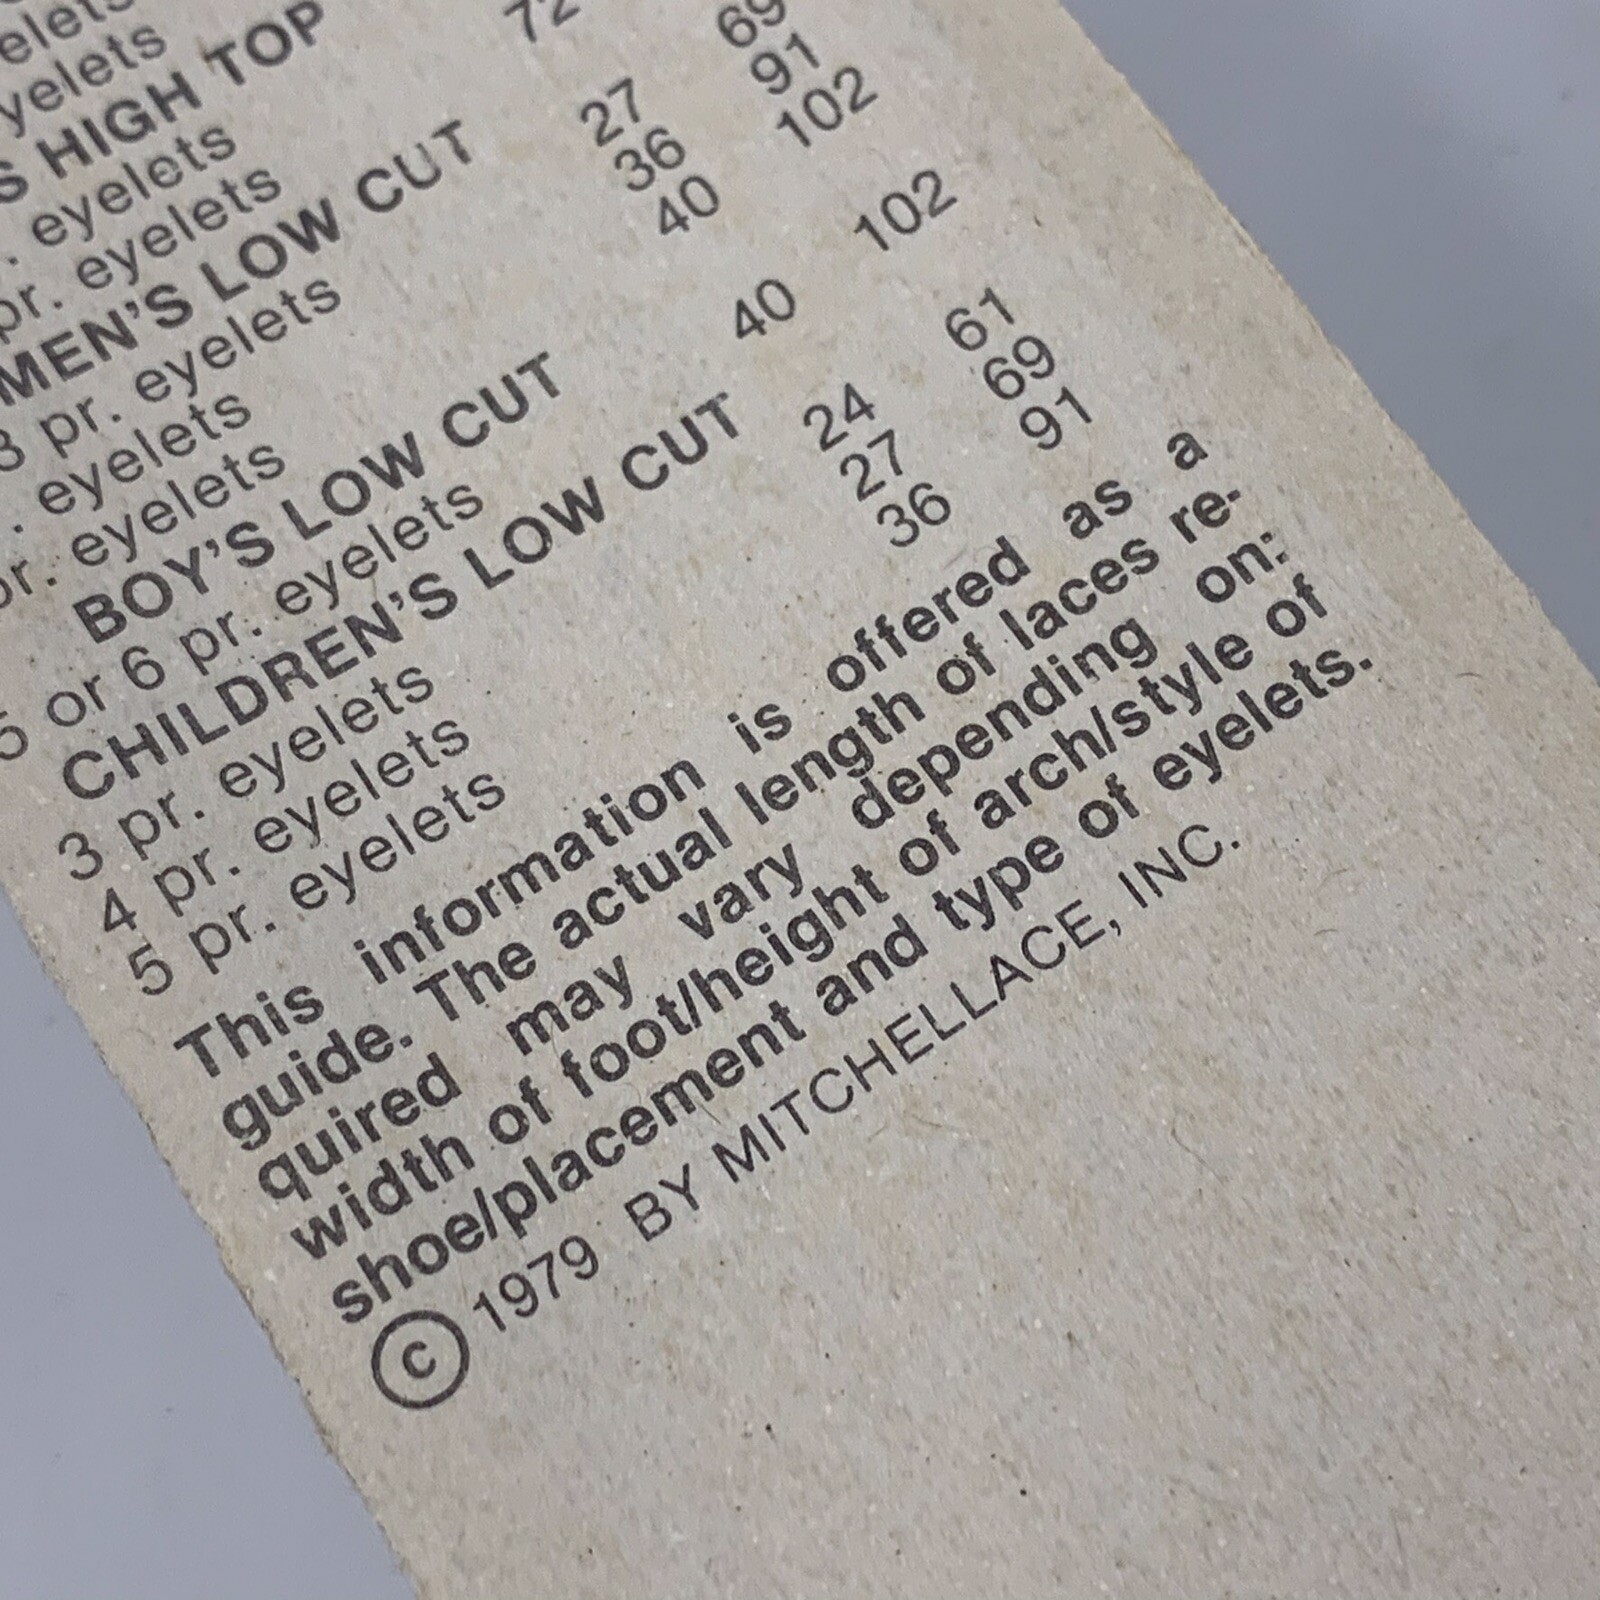 eyelets
S HIGH TOP
eyelets
pr. eyelets 72
MEN'S LOW CUT
3 pr. eyelets 27 69
. eyelets 36 91
pr. eyelets 40 102
BOY'S LOW CUT
5 or 6 pr. eyelets 40 102
CHILDREN'S LOW CUT
3 pr. eyelets 24 61
4 pr. eyelets 27 69
5 pr. eyelets 36 91
This information is offered as a
guide. The actual length of laces re-
quired may vary depending on:
width of foot/height of arch/style of
shoe/placement and type of eyelets.
© 1979 BY MITCHELLACE, INC.